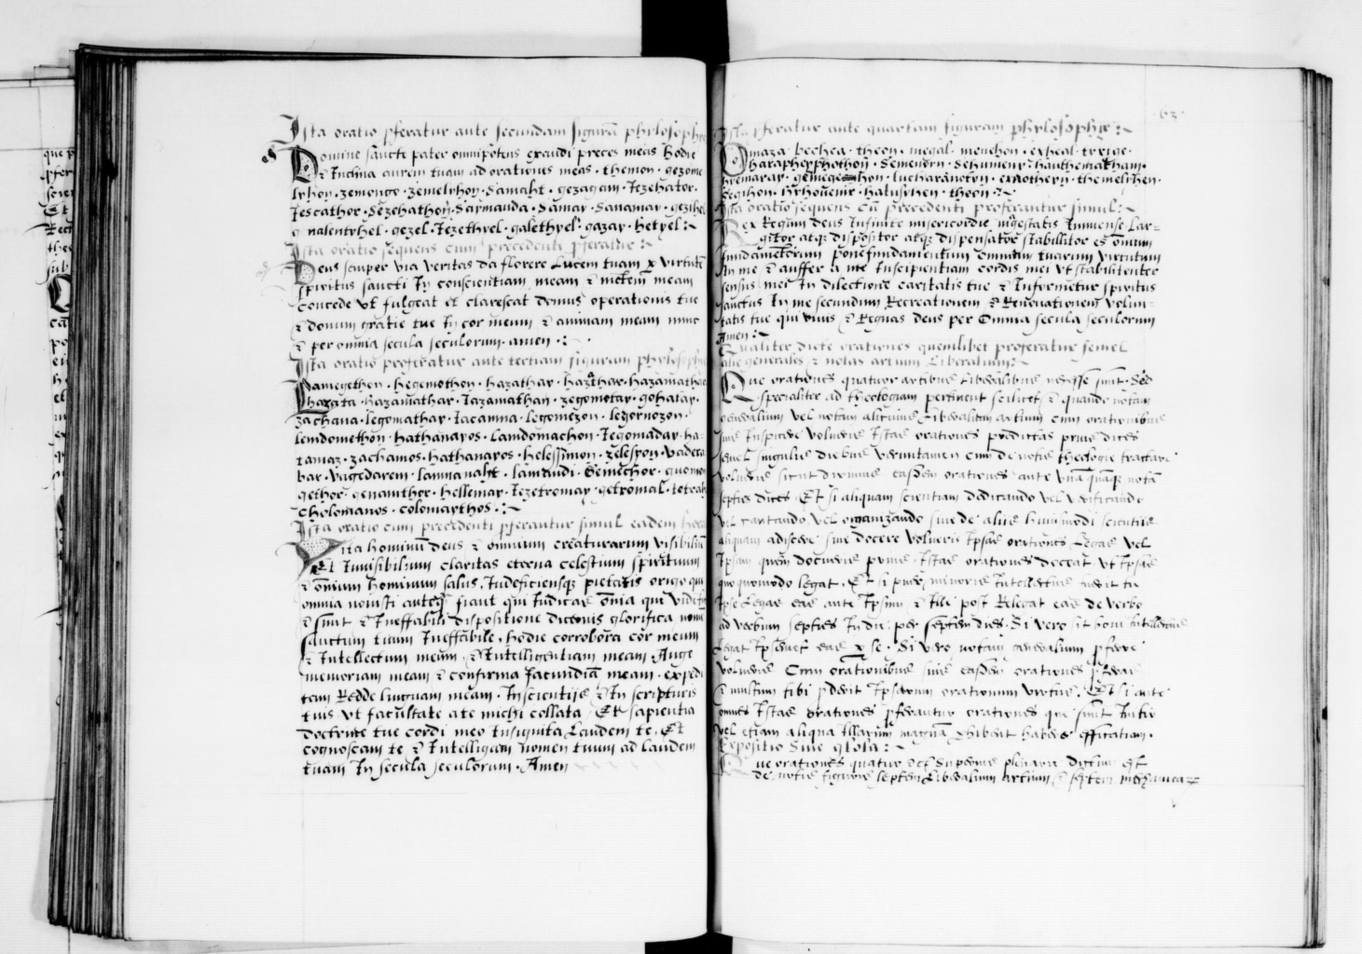 Ista oratio pferatur ante secundam figurā phylosophie
Domine sancte pater omnipotens exaudi preces meas hodie
& Inclina aurem tuam ad orationes meas · themon · gezomo
lrhon · zemonge · zemelrhon · Samaht · gezagam · Iezehator ·
Iescathor · Sezehathon · Saymanda · Samay · Sanamay · gezihel
nalentrhel · gezel · Iezethyel · galethyel · gazay · hetyel :~
Ista oratio sequens cum precedenti pferatur :~
Deus semper via veritas da florere Lucem tuam & virtutē
spiritus sancti In conscientiam meam & mentem meam
concede vt fulgeat et clarescat donus operationis tue
& donum gratie tue In cor meum & animam meam nunc
& per omnia secula seculorum · amen · :
Ista oratio proferatur ante tertiam figuram phylosophie
Lamegethon · hegemothon · hazathar · hazathar · hazamathar
hazata · hazamathar · Iazamathan · zegomotar · gohatay ·
zachana · legomathar · Iacamna · legomezon · legornozon ·
lemdomethon · hathanayos · Lamdomachon · Iegomaday · ha-
tamaz · zachamos · hathanayos · helessimon · zelesyon · vadeco
bar · vuegedarem · lamnavaht · lamandi · Gemechor · guomo
gethor · genamthor · hellemay · Iezetromay · getromal · Ietoa
cholomanos · colomaythos · :~
Ista oratio cum precedenti pferantur simul eadem hora
Vita hominū deus & omnium creaturarum visibiliū
et Inuisibilium claritas eterna celestium spirituum
& omnium hominum salus, Indeficiensque pietatis origo qui
omnia nouisti anteqͣ fiant qui Iudicas omnia qui vides
& sunt & Ineffabili dispositione discernis glorifica nomē
sanctum tuum Ineffabile, hodie corrobora cor meum
& Intellectum meum, & Intelligentiam meam Auge
memoriam meam & confirma facundiā meam · expedi
tem Redde linguam meam · In scientijs & In scripturis
tuis vt facultate a te michi collata, Et sapientia
doctrine tue cordi meo Insignita Laudem te, Et
cognoscam te & Intelligam nomen tuum ad laudem
tuam In secula seculorum · Amen
63
Ista pferatur ante quartam figuram phylosophie :~
Omaza · bechea · theon · megal · menehon · exheal · treige ·
haraphexphothon · Semendon · Sehumeny · hauthemaȶham ·
hyemaray · gemegehon · lucharanothy · exnothem · themelychen ·
Segihon · hyhouenir · haluychen · theon :~
Ista oratio sequens cū precedenti proferantur simul :
Rex Regum deus Infinite misericordie maiestatis Immense Lar-
gitor atque dispositor atque dispensator stabilitor es omnium
fundamentorum pone fundamentum omnium tuarum virtutum
In me & auffer a me Insipientiam cordis mei vt stabiliantur
sensus mei In dilectione caritatis tue & Informetur spiritus
sanctus In me secundum Recreationem & Renouationem volun-
tatis tue qui viuis & Regnas deus per Omnia secula seculorum
Amen :~
Qualiter dicte orationes quenlibet proferatur semel
generales & notas artium Liberalium :
Que orationes quatuor artibus Liberalibus necesse sunt · Sed
specialiter ad theologiam pertinent scilicet & quando notam
generalium vel notam alicuius Liberalium artium cum orationibus
suis Inspicere volueris Istas orationes predictas prius dices
semel singulis diebus veruntamen cum de notis theologie tractare
volueris sicut diximus easdem orationes ante vnā quāque notā
septies dices · Et si aliquam scientiam dedicando vel versificando
vel cantando, vel organizando siue de alijs huiusmodi scientijs
aliquam adiscere siue docere volueris Ipsas orationes Legas vel
Ipsum quem docueris primo Istas orationes doceat vt Ipsas
quoquomodo legat · Et si puer minoris Intellectus fuerit tu
Ipse Legas eas ante Ipsum & Ille post Relegat eas de verbo
ad verbum septies In die per septem dies · Si vero sit boni Intellectus
legat Ipsemet eas p se · Si vero notam generalium pferre
volueris Cum orationibus suis easdem orationes pferas
& multum tibi pderit Ipsarum orationum virtus · Et si ante
omnes Istas orationes pferantur orationes que sunt Initio
vel etiam aliqua Illarum magnā exhibent habere efficatiam ·
Expositio Siue glosa : ~
Que orationes quatuor
de notis figuris septem Liberalium artium & septem mechanicaꝝ